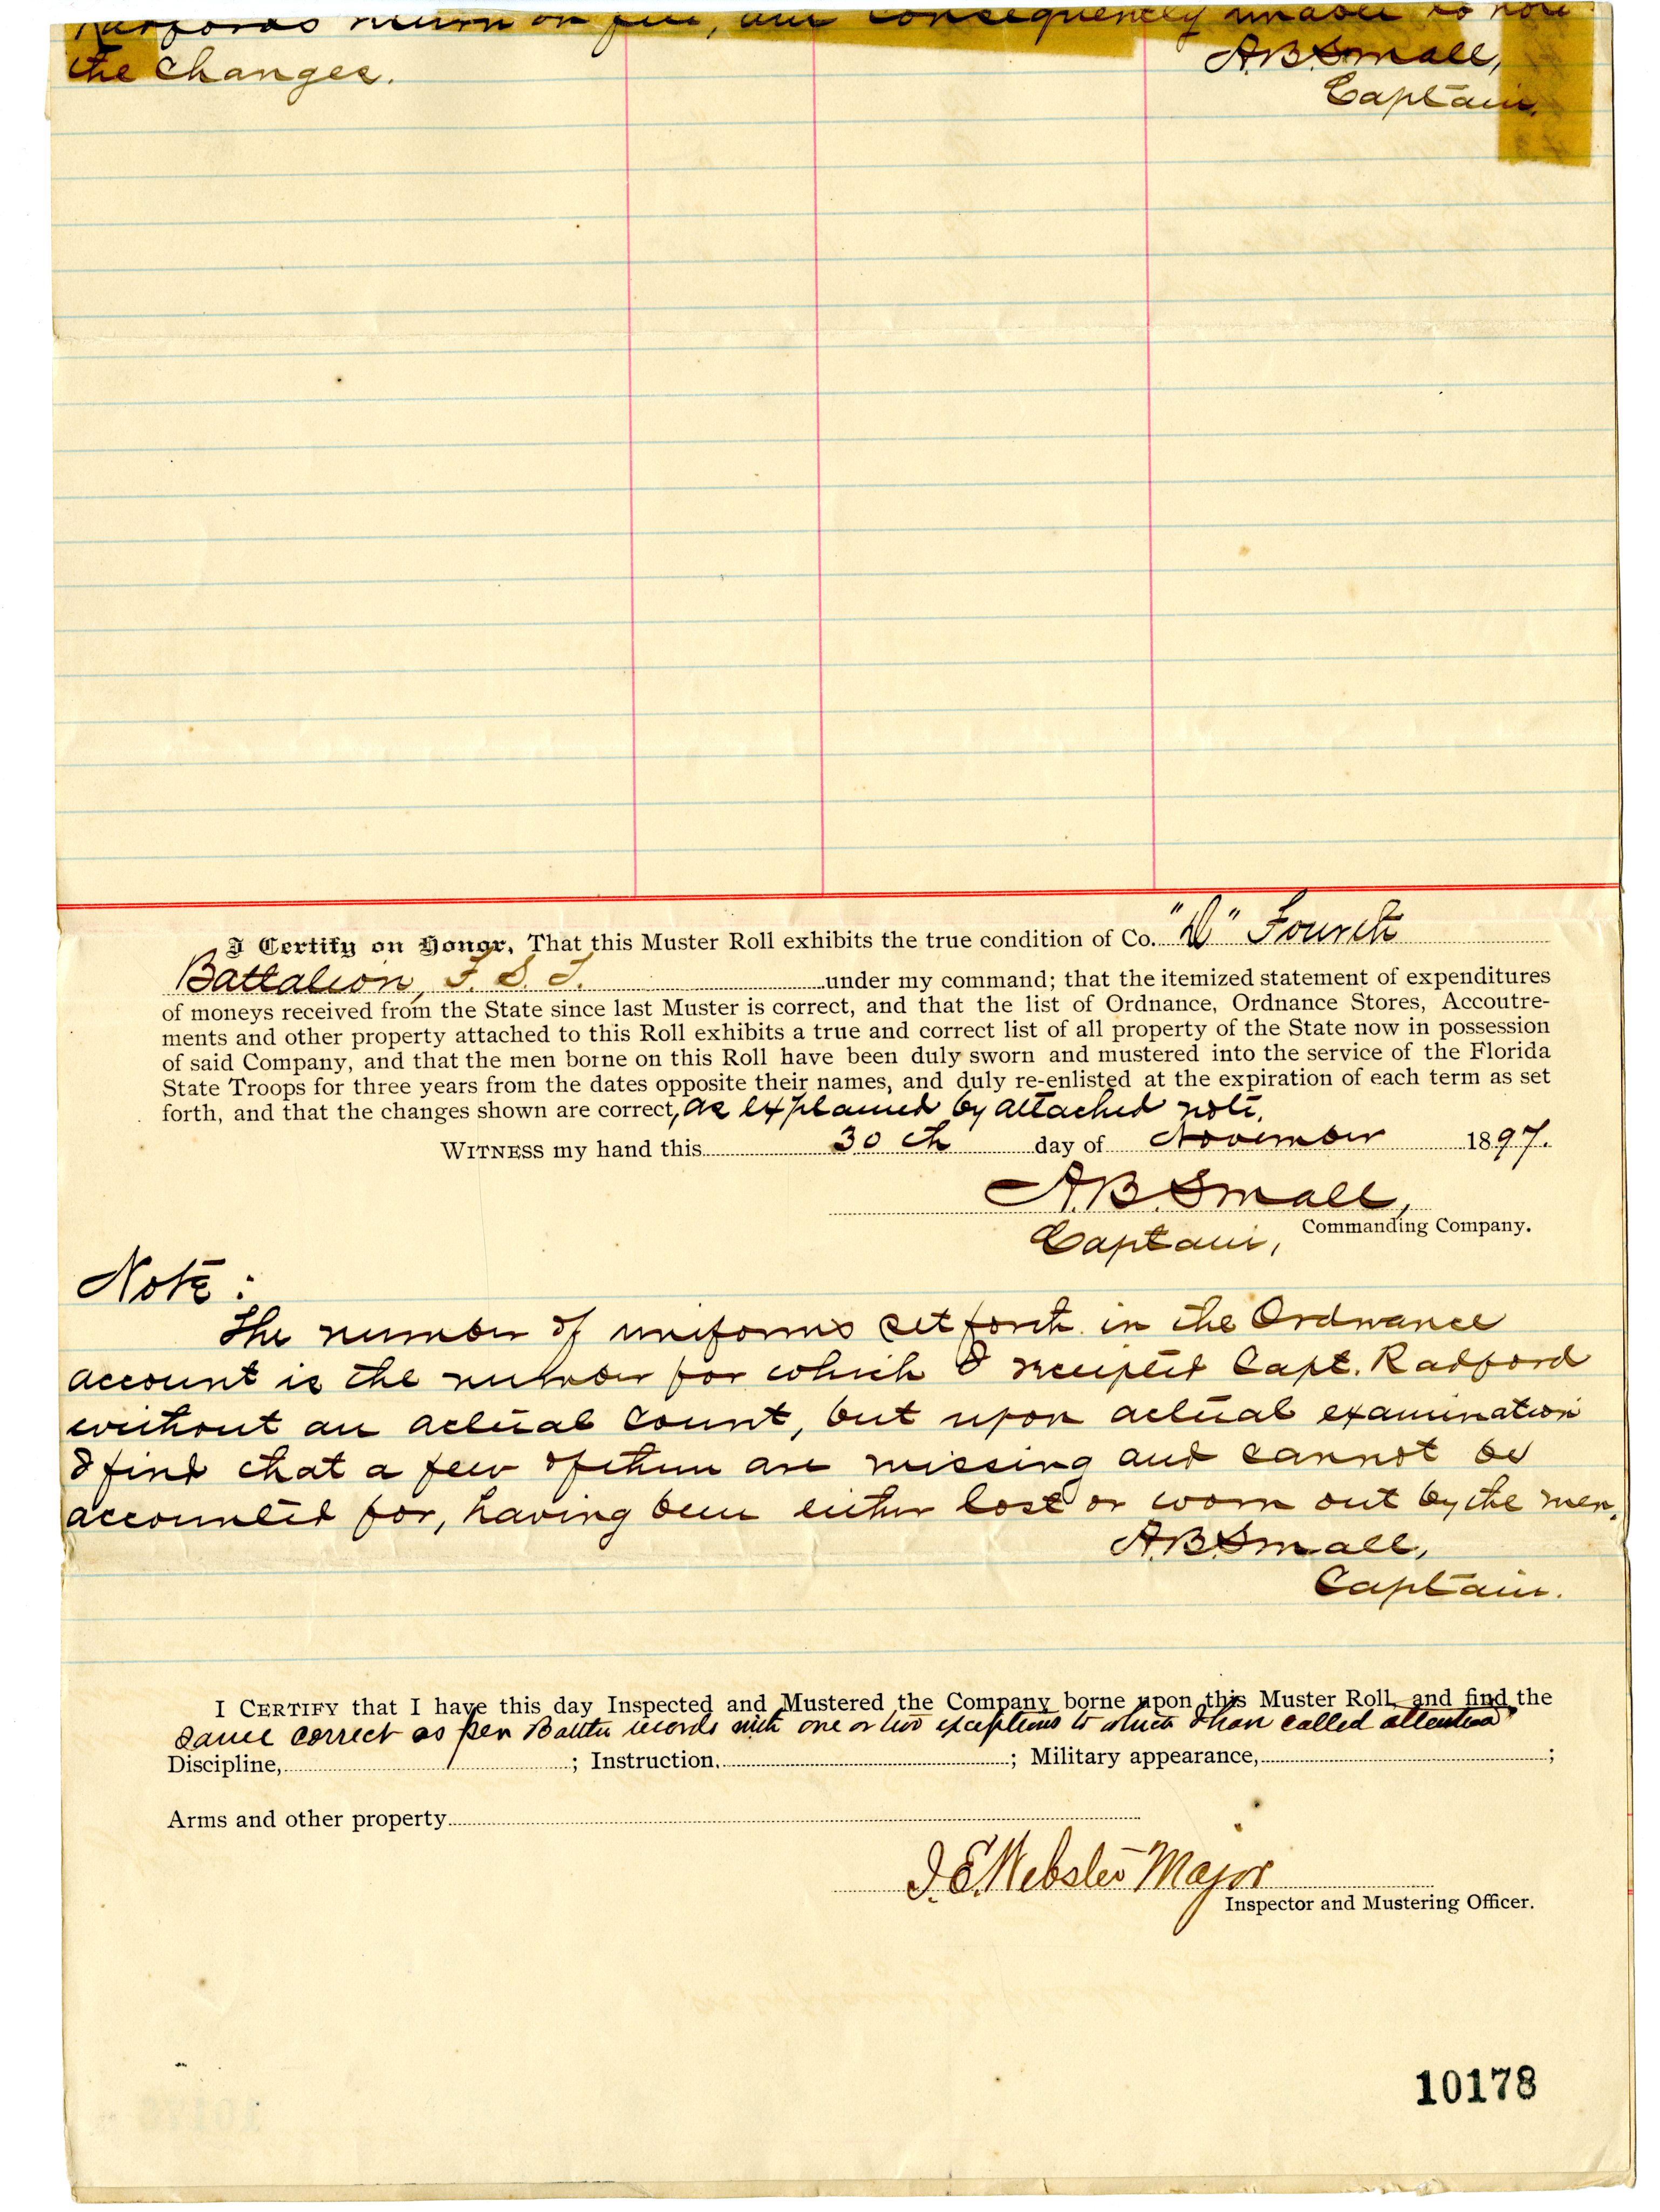 Radfords return on file, and consequently unable to note
the changes.
A.B. Small,
Captain.
I Certify on Honor, That this Muster Roll exhibits the true condition of Co. "D" Fourth
Battalion, F. S. T. under my command; that the itemized statement of expenditures
of moneys received from the State since last Muster is correct, and that the list of Ordnance, Ordnance Stores, Accoutre-
ments and other property attached to this Roll exhibits a true and correct list of all property of the State now in possession
of said Company, and that the men borne on this Roll have been duly sworn and mustered into the service of the Florida
State Troops for three years from the dates opposite their names, and duly re-enlisted at the expiration of each term as set
forth, and that the changes shown are correct, as explained by attached note.
WITNESS my hand this 30th day of November 1897.
A.B. Small,
Captain, Commanding Company.
Note:
The number of uniforms set forth in the Ordnance
account is the number for which I receipted Capt. Radford
without an actual count, but upon actual examination
I find that a few of them are missing and cannot be
accounted for, having been either lost or worn out by the men.
A.B. Small,
Captain.
I CERTIFY that I have this day Inspected and Mustered the Company borne upon this Muster Roll, and find the
same correct as per records with one or two exceptions to which I have called attention
Discipline, ; Instruction, ; Military appearance, ;
Arms and other property
J.E. Webster Major
Inspector and Mustering Officer.
10178